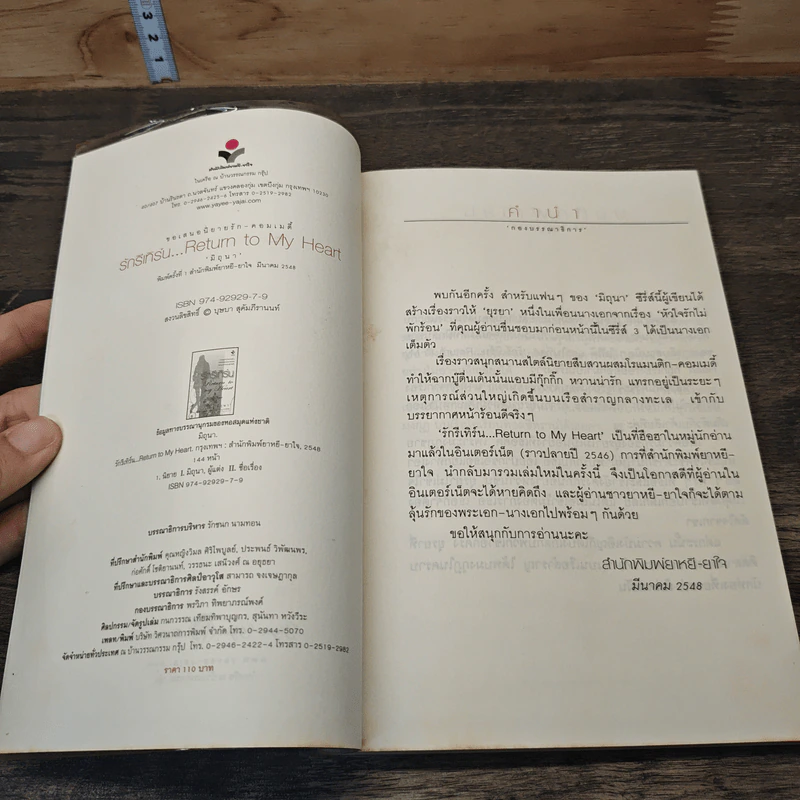 3
2
1
สำนักพิมพ์ยาหยี-ยาใจ
ในเครือ ณ บ้านวรรณกรรม กรุ๊ป
แขวงคลองกุ่ม เขตบึงกุ่ม กรุงเทพฯ 10230
โทรสาร 0-2519-2982
www.yayee-yajai.com
ขอเสนอนิยายรัก-คอมเมดี้
รักรีเทิร์น...Return to My Heart
'มิถุนา'
พิมพ์ครั้งที่ 1 สำนักพิมพ์ยาหยี-ยาใจ มีนาคม 2548
ISBN 974-92929-7-9
สงวนลิขสิทธิ์ © บุษบา สุคัมภีรานนท์
ข้อมูลทางบรรณานุกรมของหอสมุดแห่งชาติ
มิถุนา.
รักรีเทิร์น...Return to My Heart. กรุงเทพฯ : สำนักพิมพ์ยาหยี-ยาใจ, 2548
144 หน้า
1. นิยาย I. มิถุนา, ผู้แต่ง II. ชื่อเรื่อง
ISBN 974-92929-7-9
บรรณาธิการบริหาร รักชนก นามทอน
ที่ปรึกษาสำนักพิมพ์ คุณหญิงวิมล ศิริไพบูลย์, ประพนธ์ วิพัฒนพร,
ก่อศักดิ์ โชติยานนท์, วรรธนะ เสนีวงศ์ ณ อยุธยา
ที่ปรึกษาและบรรณาธิการศิลป์อาวุโส สามารถ จงเจษฎากุล
บรรณาธิการ รังสรรค์ อักษร
กองบรรณาธิการ พรวิภา ทิพยาภรณ์พงศ์
ศิลปกรรม/จัดรูปเล่ม กนกวรรณ เทียมทิพาบุญกร, สุนันทา หวังวีระ
เพลท/พิมพ์ บริษัท วิศวนาถการพิมพ์ จำกัด โทร. 0-2944-5070
จัดจำหน่ายทั่วประเทศ ณ บ้านวรรณกรรม กรุ๊ป โทร. 0-2946-2422-4 โทรสาร 0-2519-2982
ราคา 110 บาท
คำนำ
'กองบรรณาธิการ'
พบกันอีกครั้ง สำหรับแฟนๆ ของ 'มิถุนา' ซีรี่ส์นี้ผู้เขียนได้
สร้างเรื่องราวให้ 'ยุรยา' หนึ่งในเพื่อนนางเอกจากเรื่อง 'หัวใจรักไม่
พักร้อน' ที่คุณผู้อ่านชื่นชอบมาก่อนหน้านี้ในซีรี่ส์ 3 ได้เป็นนางเอก
เต็มตัว
เรื่องราวสนุกสนานสไตล์นิยายสืบสวนผสมโรแมนติก-คอมเมดี้
ทำให้ฉากบู๊ตื่นเต้นนั้นแอบมีกุ๊กกิ๊ก หวานน่ารัก แทรกอยู่เป็นระยะๆ
เหตุการณ์ส่วนใหญ่เกิดขึ้นบนเรือสำราญกลางทะเล เข้ากับ
บรรยากาศหน้าร้อนดีจริงๆ
'รักรีเทิร์น...Return to My Heart' เป็นที่ฮือฮาในหมู่นักอ่าน
มาแล้วในอินเตอร์เน็ต (ราวปลายปี 2546) การที่สำนักพิมพ์ยาหยี-
ยาใจ นำกลับมารวมเล่มใหม่ในครั้งนี้ จึงเป็นโอกาสดีที่ผู้อ่านใน
อินเตอร์เน็ตจะได้หายคิดถึง และผู้อ่านชาวยาหยี-ยาใจก็จะได้ตาม
ลุ้นรักของพระเอก-นางเอกไปพร้อมๆ กันด้วย
ขอให้สนุกกับการอ่านนะคะ
สำนักพิมพ์ยาหยี-ยาใจ
มีนาคม 2548